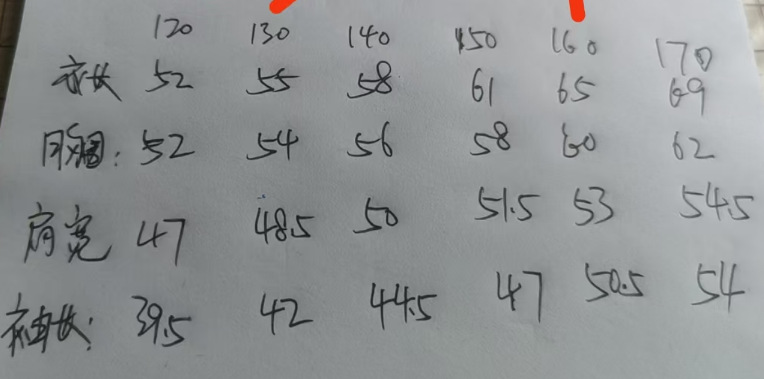 120 130 140 150 160 170
衣长 52 55 58 61 65 69
胸围: 52 54 56 58 60 62
肩宽 47 48.5 50 51.5 53 54.5
袖长: 39.5 42 44.5 47 50.5 54